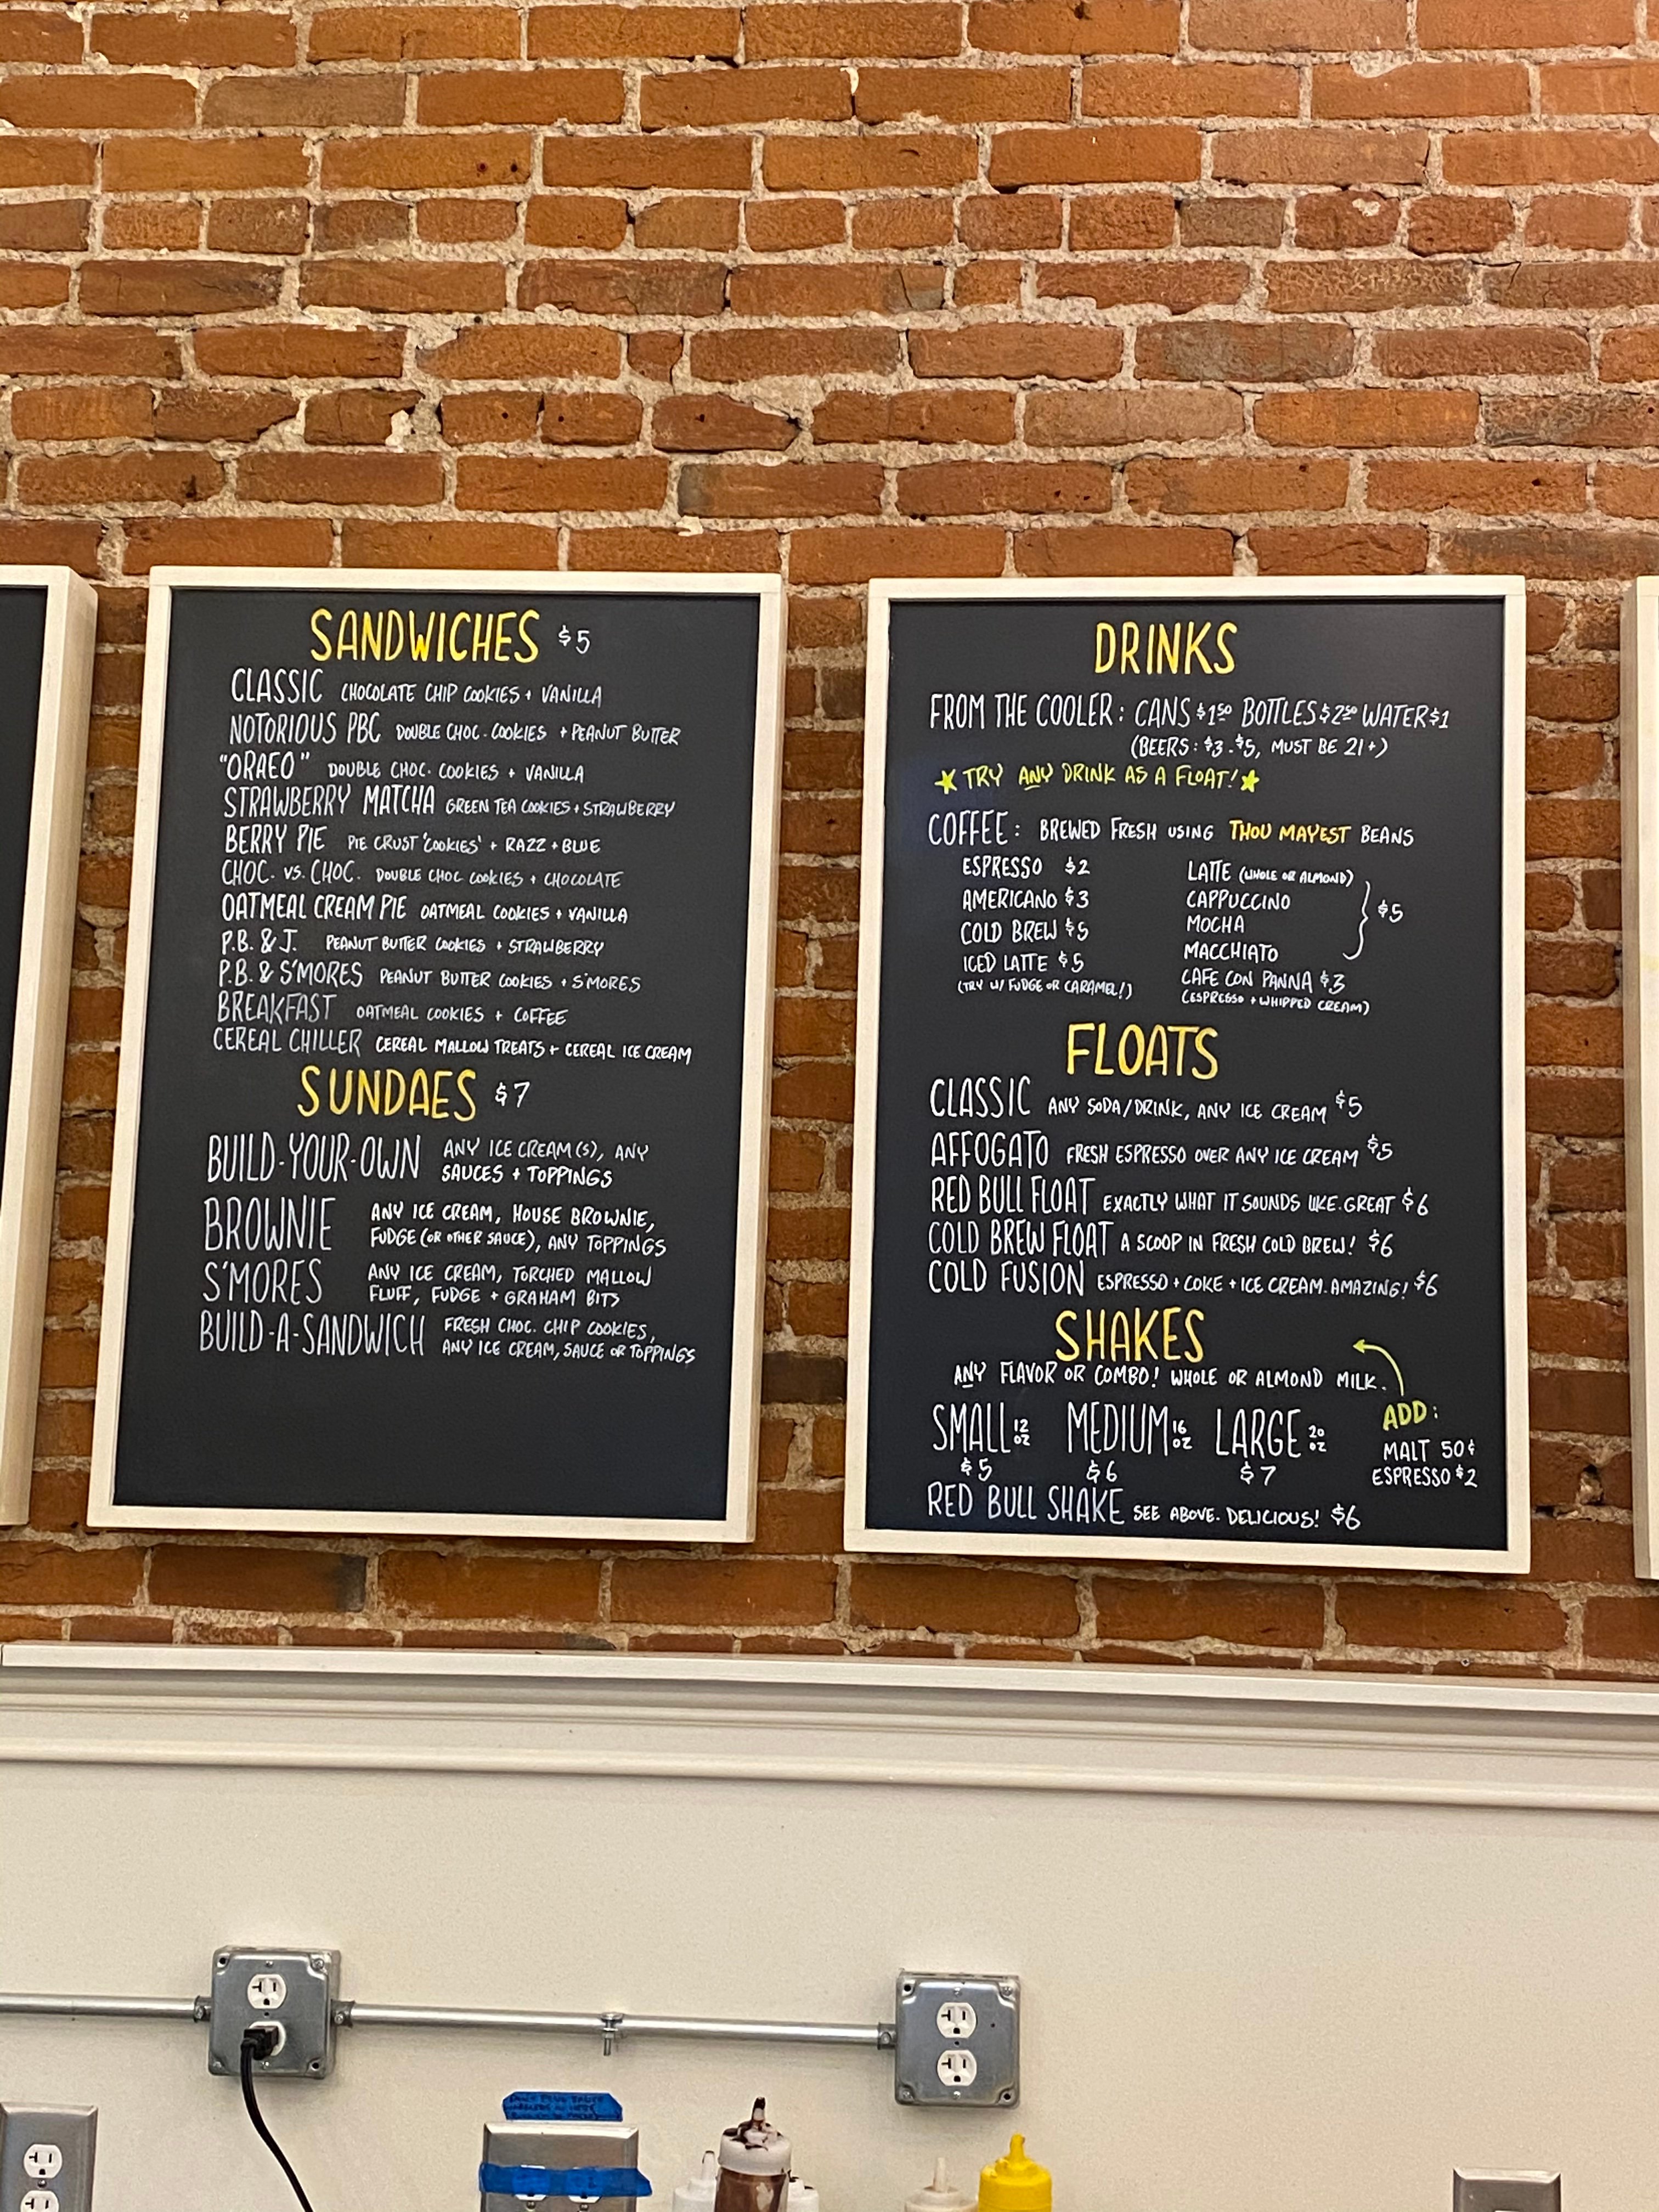 SANDWICHES $5
CLASSIC CHOCOLATE CHIP COOKIES + VANILLA
NOTORIOUS PBC DOUBLE CHOC. COOKIES + PEANUT BUTTER
"ORAEO" DOUBLE CHOC. COOKIES + VANILLA
STRAWBERRY MATCHA GREEN TEA COOKIES + STRAWBERRY
BERRY PIE PIE CRUST 'COOKIES' + RAZZ + BLUE
CHOC. VS. CHOC. DOUBLE CHOC COOKIES + CHOCOLATE
OATMEAL CREAM PIE OATMEAL COOKIES + VANILLA
P.B. & J. PEANUT BUTTER COOKIES + STRAWBERRY
P.B. & S'MORES PEANUT BUTTER COOKIES + S'MORES
BREAKFAST OATMEAL COOKIES + COFFEE
CEREAL CHILLER CEREAL MALLOW TREATS + CEREAL ICE CREAM
SUNDAES $7
BUILD-YOUR-OWN ANY ICE CREAM(S), ANY
SAUCES + TOPPINGS
BROWNIE ANY ICE CREAM, HOUSE BROWNIE,
FUDGE (OR OTHER SAUCE), ANY TOPPINGS
S'MORES ANY ICE CREAM, TORCHED MALLOW
FLUFF, FUDGE + GRAHAM BITS
BUILD-A-SANDWICH FRESH CHOC. CHIP COOKIES,
ANY ICE CREAM, SAUCE OR TOPPINGS
DRINKS
FROM THE COOLER: CANS $1.50 BOTTLES $2.50 WATER $1
(BEERS: $3-$5, MUST BE 21+)
★ TRY ANY DRINK AS A FLOAT! ★
COFFEE: BREWED FRESH USING THOU MAYEST BEANS
ESPRESSO $2
AMERICANO $3
COLD BREW $5
ICED LATTE $5
(TRY W/ FUDGE OR CARAMEL!)
LATTE (WHOLE OR ALMOND)
CAPPUCCINO
MOCHA
MACCHIATO
$5
CAFE CON PANNA $3
(ESPRESSO + WHIPPED CREAM)
FLOATS
CLASSIC ANY SODA/DRINK, ANY ICE CREAM $5
AFFOGATO FRESH ESPRESSO OVER ANY ICE CREAM $5
RED BULL FLOAT EXACTLY WHAT IT SOUNDS LIKE. GREAT $6
COLD BREW FLOAT A SCOOP IN FRESH COLD BREW! $6
COLD FUSION ESPRESSO + COKE + ICE CREAM. AMAZING! $6
SHAKES
ANY FLAVOR OR COMBO! WHOLE OR ALMOND MILK.
SMALL 12 OZ MEDIUM 16 OZ LARGE 20 OZ
$5 $6 $7
ADD:
MALT 50¢
ESPRESSO $2
RED BULL SHAKE SEE ABOVE. DELICIOUS! $6